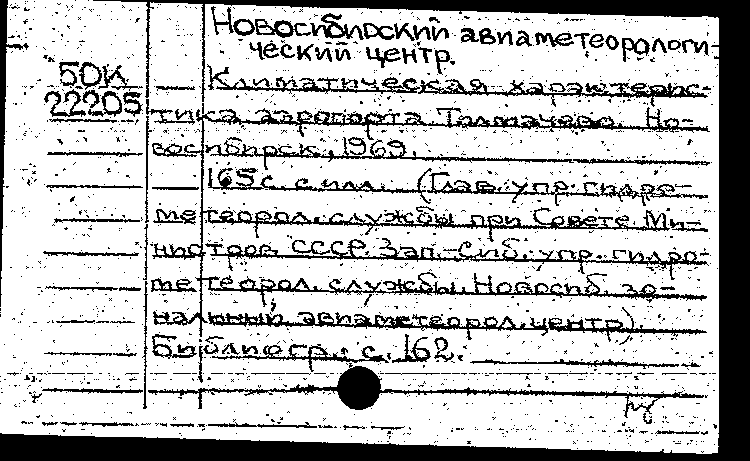 Новосибирский авиаметеорологи-
ческий центр.
50К
22205
Климатическая характерис-
тика аэропорта Толмачево. Но-
восибирск, 1969.
165 с. с илл. (Глав. упр. гидро-
метеорол. службы при Совете Ми-
нистров СССР. Зап.-Сиб. упр. гидро-
метеорол. службы. Новосиб. зо-
нальный авиаметеорол. центр).
Библиогр.: с. 162.